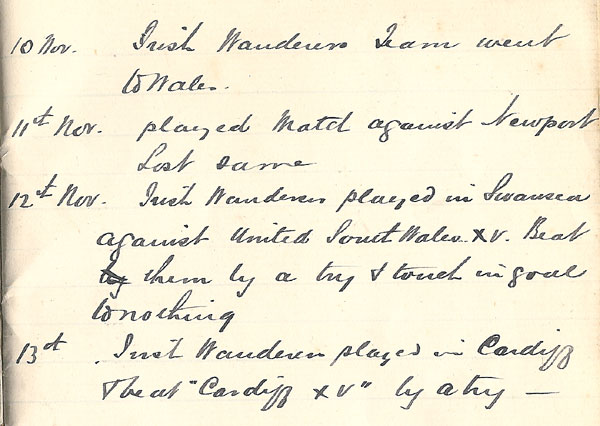 10 Nov. Irish Wanderers Team went
to Wales.
11th Nov. played Match against Newport
Lost same
12th Nov. Irish Wanderers played in Swansea
against United South Wales XV. Beat
by them by a try & touch in goal
to nothing
13th Irish Wanderers played in Cardiff
& beat "Cardiff XV" by a try —